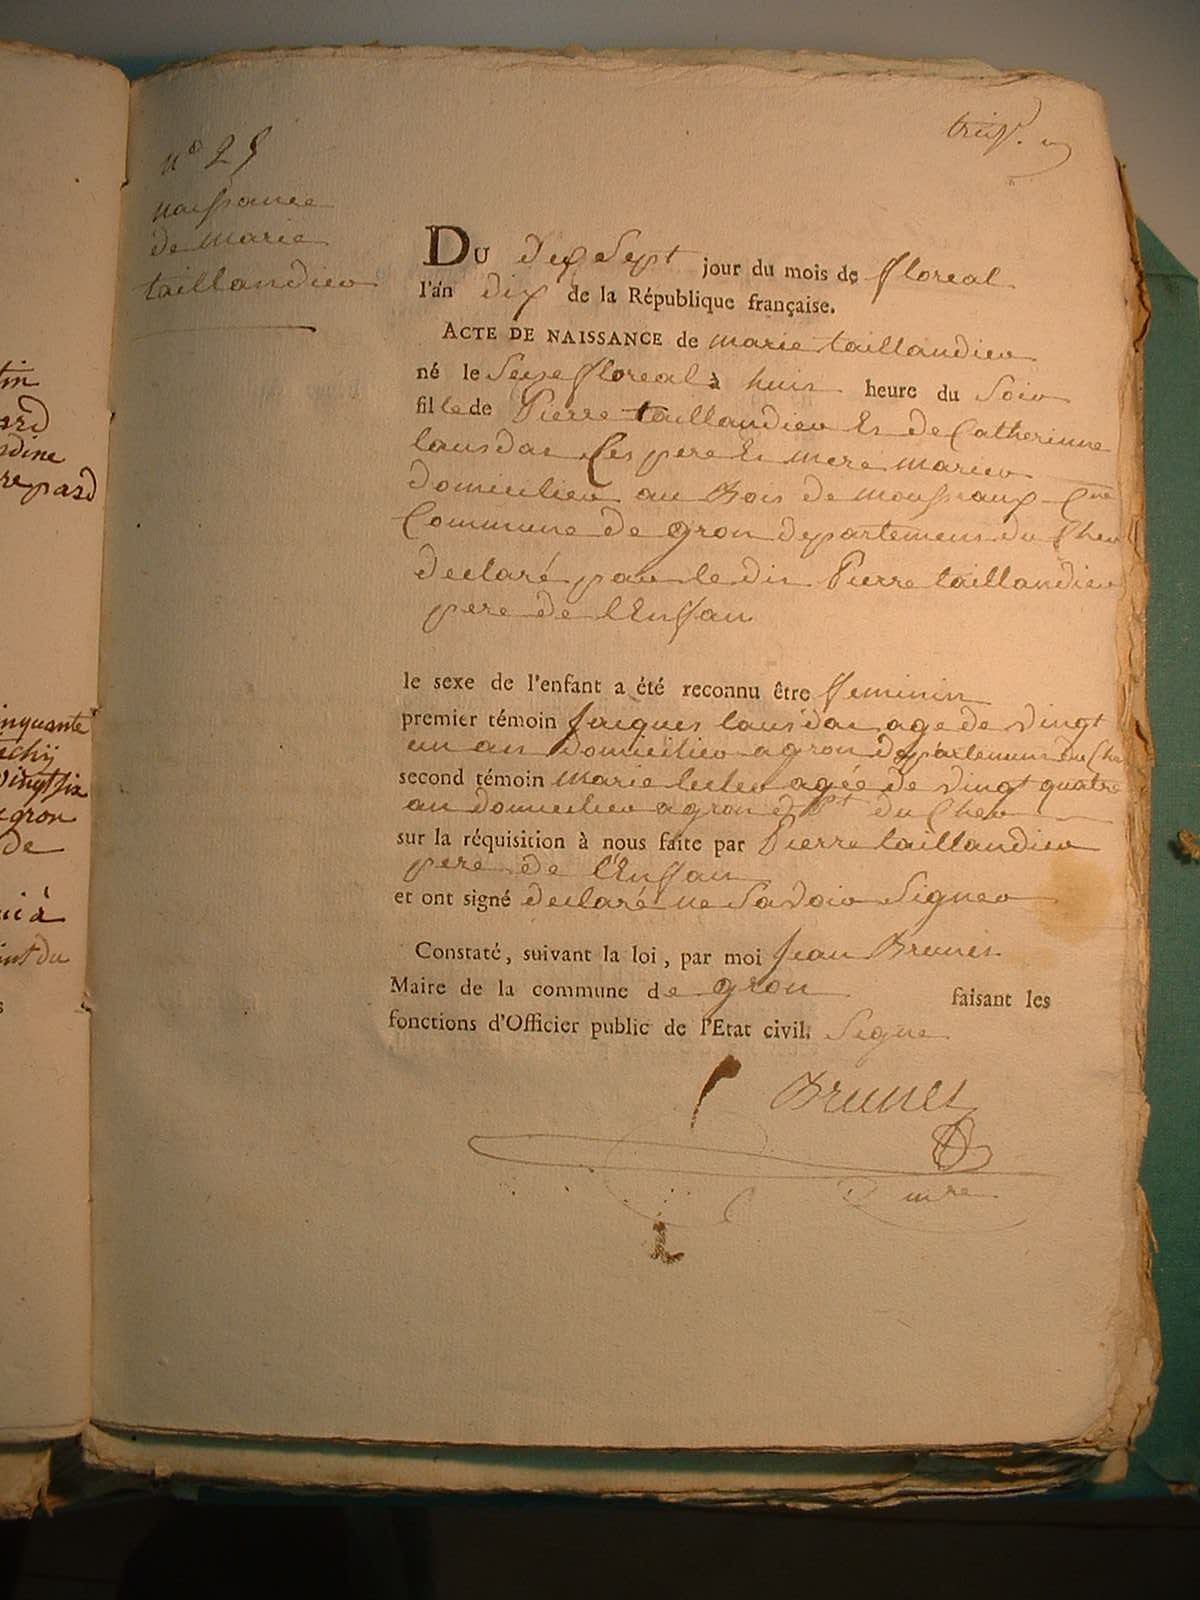 n° 25
naissance
de marie
taillandier
Du dix Sept jour du mois de floreal
l'an dix de la République française.
ACTE DE NAISSANCE de marie taillandier
né le Seize floreal à huit heure du Soir
fille de Pierre taillandier Et de Catherinne
lausdat Ces pere Et mere marier
domicilier au Bois de moussaux
Commune de gron departement du Cher
declaré par le dit Pierre taillandier
pere de l'Enfan
le sexe de l'enfant a été reconnu être feminin
premier témoin Jacques lausdat age de vingt
un an domicilier a gron departement du Che
second témoin marie agée de vingt quatre
an domicilier a gron dpt du Cher
sur la réquisition à nous faite par Pierre taillandier
pere de l'Enfan
et ont signé declaré ne Savoir Signer
Constaté, suivant la loi, par moi Jean Brunet
Maire de la commune de gron faisant les
fonctions d'Officier public de l'Etat civil. Signe
Brunet
mre
tin
ard
rdine
repard
inquante
vingt six
gron
de
à
du
s